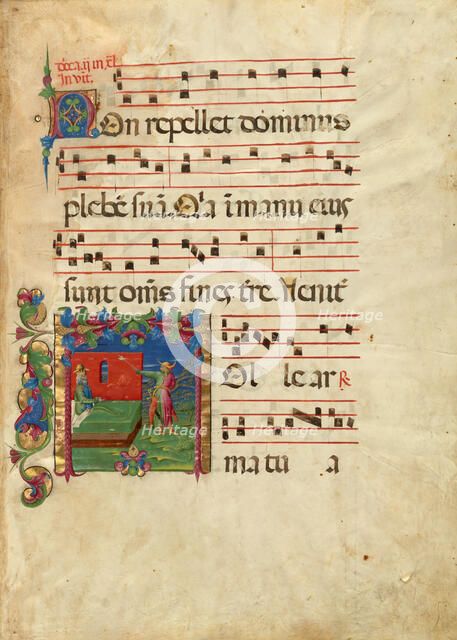 Dñca ij in xl
Invit.
Non repellet dominus
plebē suā Q'a ī manu eius
sunt oms fines tr̄e. Venit̄
Tolle ar R̄
ma tu a
Heritage
Heritage
Heritage
Heritage
Heritage
Heritage